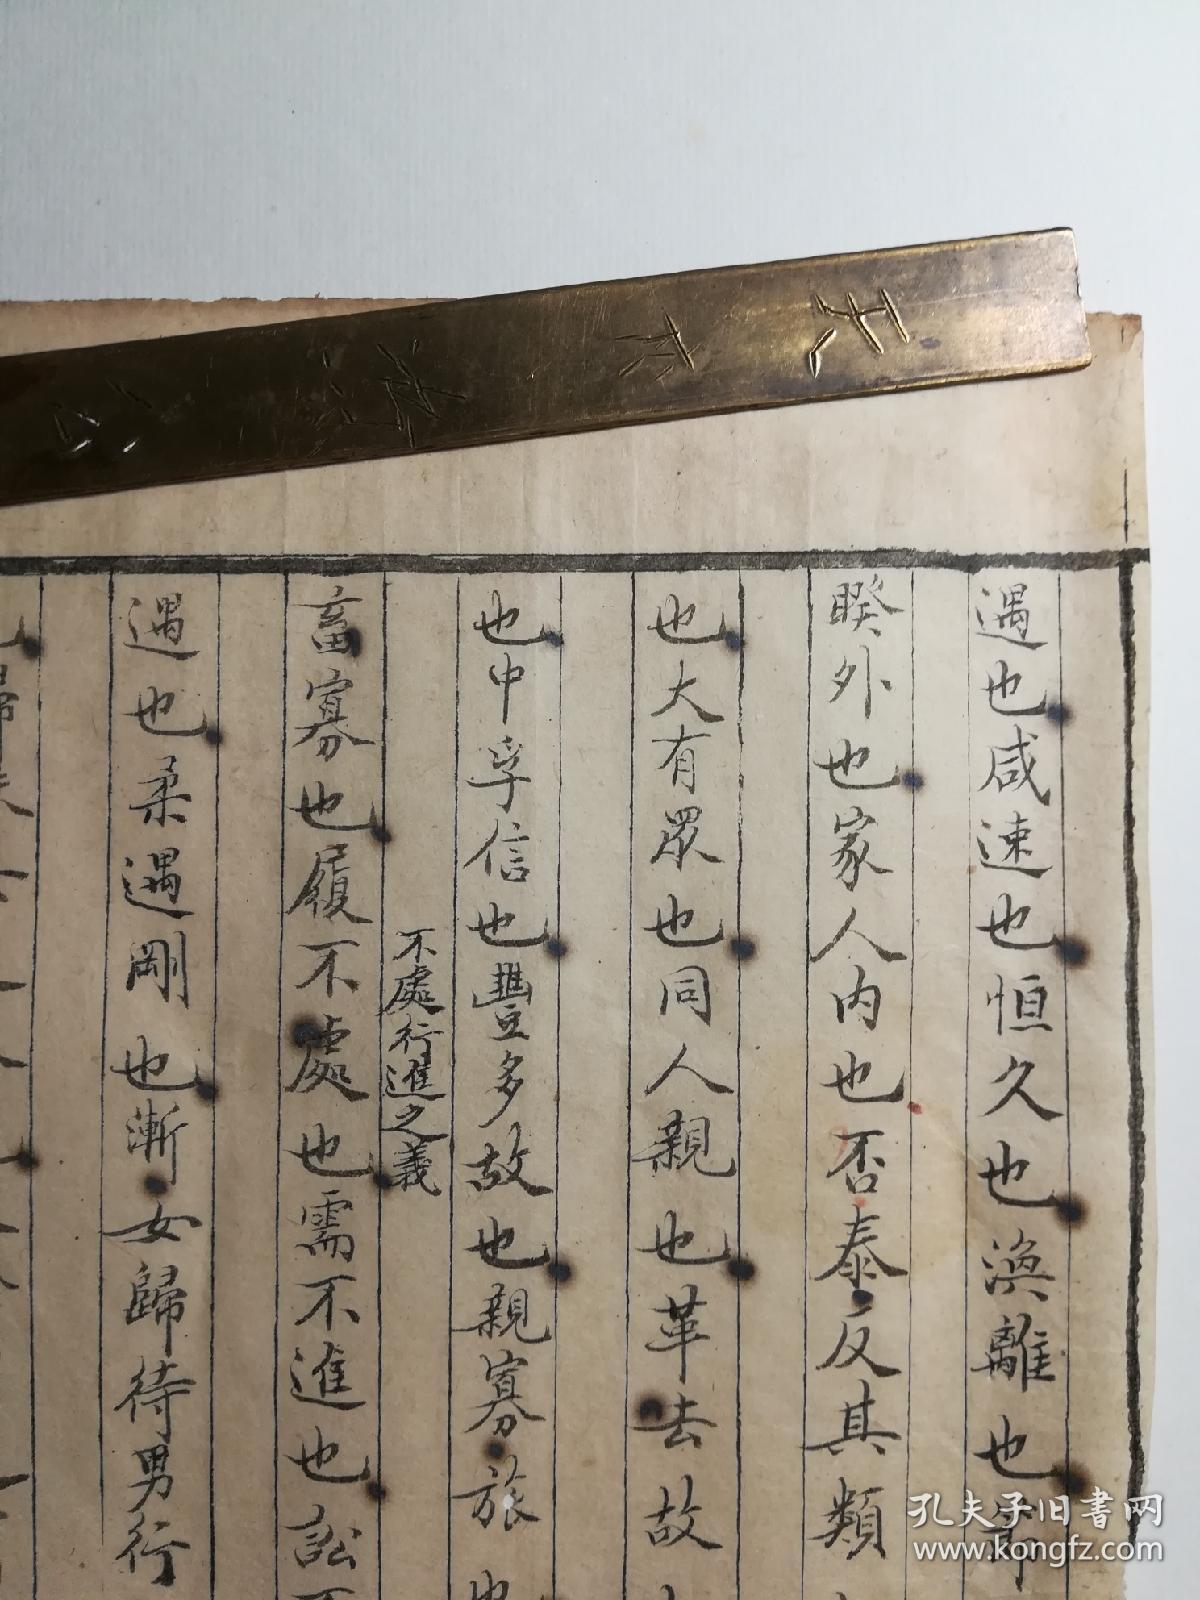 遇也咸速也恒久也渙離也節
睽外也家人內也否泰反其類
也大有眾也同人親也革去故
也中孚信也豐多故也親寡旅也
不處行進之義
畜寡也履不處也需不進也訟不
遇也柔遇剛也漸女歸待男行
孔夫子旧书网
www.kongfz.com